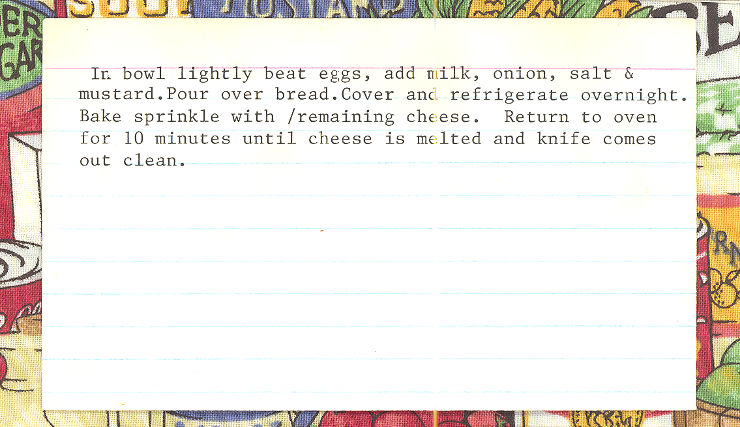 In bowl lightly beat eggs, add milk, onion, salt &
mustard.Pour over bread.Cover and refrigerate overnight.
Bake sprinkle with /remaining cheese. Return to oven
for 10 minutes until cheese is melted and knife comes
out clean.